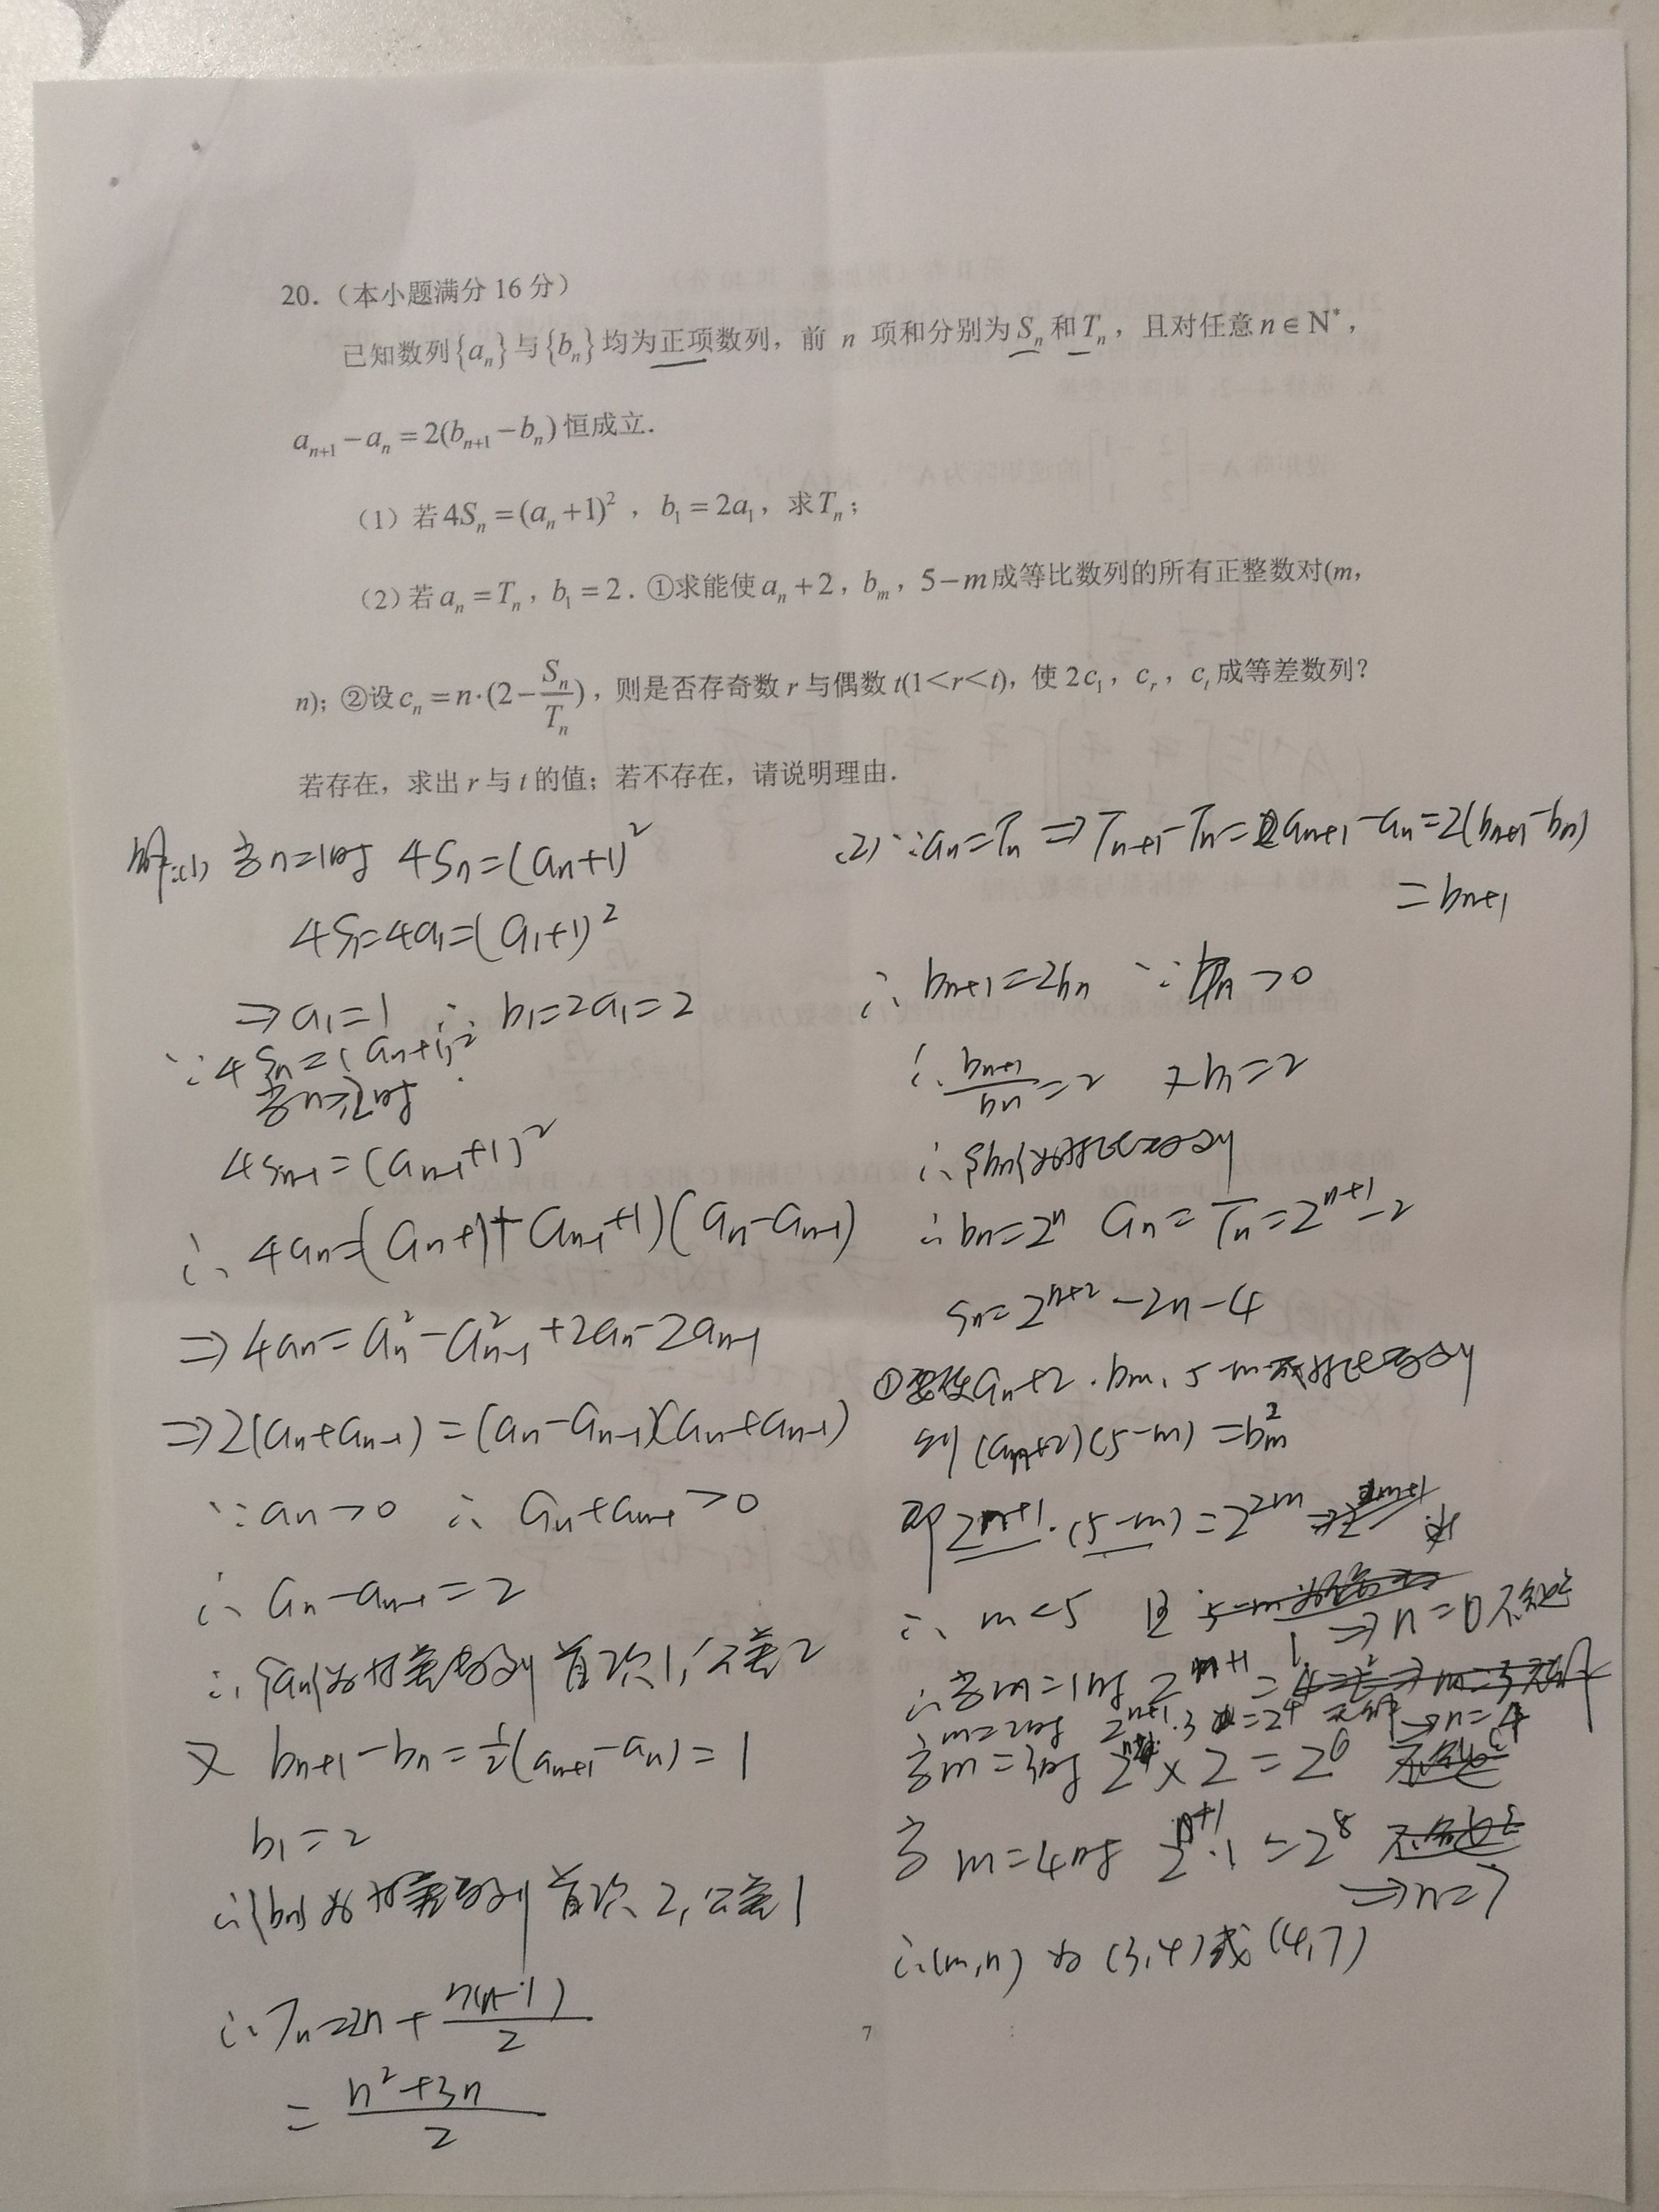 20.（本小题满分 16 分）
已知数列{aₙ}与{bₙ}均为正项数列，前 n 项和分别为 Sₙ 和 Tₙ，且对任意 n∈N*，
aₙ₊₁−aₙ=2(bₙ₊₁−bₙ)恒成立.
（1）若 4Sₙ=(aₙ+1)²，b₁=2a₁，求 Tₙ；
（2）若 aₙ=Tₙ，b₁=2．①求能使 aₙ+2，bₘ，5−m 成等比数列的所有正整数对(m，
n)；②设 cₙ=n·(2−Sₙ/Tₙ)，则是否存奇数 r 与偶数 t(1<r<t)，使 2c₁，cᵣ，cₜ 成等差数列？
若存在，求出 r 与 t 的值；若不存在，请说明理由.
解:(1) 当n=1时 4Sₙ=(aₙ+1)²
4S₁=4a₁=(a₁+1)²
⇒a₁=1 ∴ b₁=2a₁=2
∵4Sₙ=(aₙ+1)²
当n≥2时
4Sₙ₋₁=(aₙ₋₁+1)²
∴ 4aₙ=(aₙ+1+aₙ₋₁+1)(aₙ−aₙ₋₁)
⇒4aₙ=aₙ²−aₙ₋₁²+2aₙ−2aₙ₋₁
⇒2(aₙ+aₙ₋₁)=(aₙ−aₙ₋₁)(aₙ+aₙ₋₁)
∵aₙ>0 ∴ aₙ+aₙ₋₁>0
∴ aₙ−aₙ₋₁=2
∴{aₙ}为等差数列 首项1,公差2
又 bₙ₊₁−bₙ=½(aₙ₊₁−aₙ)=1
b₁=2
∴{bₙ}为等差数列 首项2,公差1
∴Tₙ=2n+n(n−1)/2
=(n²+3n)/2
(2)∵aₙ=Tₙ⇒Tₙ₊₁−Tₙ=aₙ₊₁−aₙ=2(bₙ₊₁−bₙ)
=bₙ₊₁
∴ bₙ₊₁=2bₙ ∵bₙ>0
∴ bₙ₊₁/bₙ=2 又b₁=2
∴{bₙ}为等比数列
∴bₙ=2ⁿ aₙ=Tₙ=2ⁿ⁺¹−2
Sₙ=2ⁿ⁺²−2n−4
①要使aₙ+2,bₘ,5−m成等比数列
则(aₙ+2)(5−m)=bₘ²
即2ⁿ⁺¹·(5−m)=2²ᵐ
∴ m<5 且
⇒n=0不合
∴当m=1时 2ⁿ⁺¹=
m=2时 2ⁿ⁺¹·3=2⁴ 无解
⇒n=4
当m=3时 2ⁿ⁺¹×2=2⁶
当m=4时 2ⁿ⁺¹·1=2⁸
⇒n=7
∴(m,n)为(3,4)或(4,7)
7